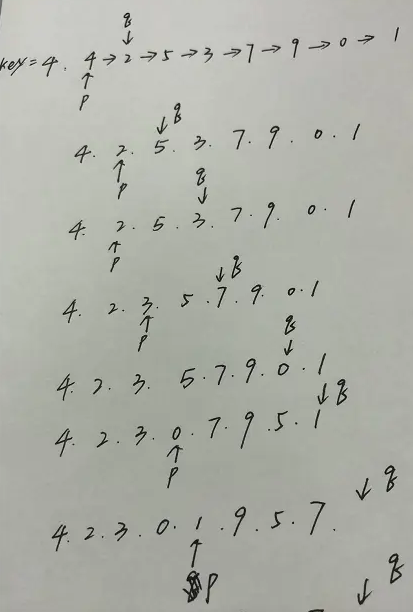 q
↓
key=4. 4→2→5→3→7→9→0→1
↑
p
↓q
4. 2. 5. 3. 7. 9. 0. 1
↑
p
q
↓
4. 2. 5. 3. 7. 9. 0. 1
↑
p
↓q
4. 2. 3. 5. 7. 9. 0. 1
↑
p
q
↓
4. 2. 3. 5. 7. 9. 0. 1
↓q
4. 2. 3. 0. 7. 9. 5. 1
↑
p
↓q
4. 2. 3. 0. 1. 9. 5. 7.
↑
p
↓q